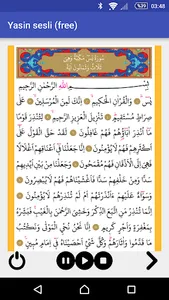 03:48
Yasin sesli (free)
سورة يس مكية وهي
ثلاث وثمانون آية
بِسْمِ اللهِ الرَّحْمٰنِ الرَّحِيمِ
يس وَالْقُرْاٰنِ الْحَكِيمِ اِنَّكَ لَمِنَ الْمُرْسَلِينَ عَلٰى
صِرَاطٍ مُسْتَقِيمٍ تَنْزِيلَ الْعَزِيزِ الرَّحِيمِ لِتُنْذِرَ قَوْمًا
مَا اُنْذِرَ اٰبَاؤُهُمْ فَهُمْ غَافِلُونَ لَقَدْ حَقَّ الْقَوْلُ عَلٰى
اَكْثَرِهِمْ فَهُمْ لَا يُؤْمِنُونَ اِنَّا جَعَلْنَا فِى اَعْنَاقِهِمْ
اَغْلَالًا فَهِىَ اِلَى الْاَذْقَانِ فَهُمْ مُقْمَحُونَ وَجَعَلْنَا مِنْ بَيْنِ
اَيْدِيهِمْ سَدًّا وَمِنْ خَلْفِهِمْ سَدًّا فَاَغْشَيْنَاهُمْ فَهُمْ لَا يُبْصِرُونَ
وَسَوَاءٌ عَلَيْهِمْ ءَاَنْذَرْتَهُمْ اَمْ لَمْ تُنْذِرْهُمْ لَا يُؤْمِنُونَ اِنَّمَا
تُنْذِرُ مَنِ اتَّبَعَ الذِّكْرَ وَخَشِىَ الرَّحْمٰنَ بِالْغَيْبِ فَبَشِّرْهُ
بِمَغْفِرَةٍ وَاَجْرٍ كَرِيمٍ اِنَّا نَحْنُ نُحْىِ الْمَوْتٰى وَنَكْتُبُ
مَا قَدَّمُوا وَاٰثَارَهُمْ وَكُلَّ شَىْءٍ اَحْصَيْنَاهُ فِى اِمَامٍ مُبِينٍ